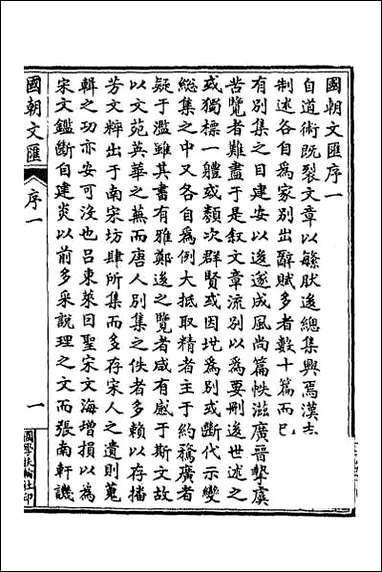 國朝文匯序一
自道術既裂文章以繇肰後總集興焉漢志
制述各自爲家別出辭賦多者數十篇而已
有別集之目建安以後遂成風尚篇帙滋廣晉摯虞
苦覽者難盡于是叙文章流別以爲要刪後世述之
或獨標一體或類次群賢或因地爲別或斷代示變
總集之中又各自爲例大抵取精者主于約騖廣者
疑于濫雖其書有雅鄭後之覽者咸有感于斯文故
以文苑英華之蕪而唐人別集之佚者多賴以存播
芳文粹出于南宋坊肆所集而多存宋人之遺則蒐
輯之功亦安可沒也呂東萊因聖宋文海增損以爲
宋文鑑斷自建炎以前多采說理之文而張南軒譏
國朝文匯
序一
一
國學扶輪社印